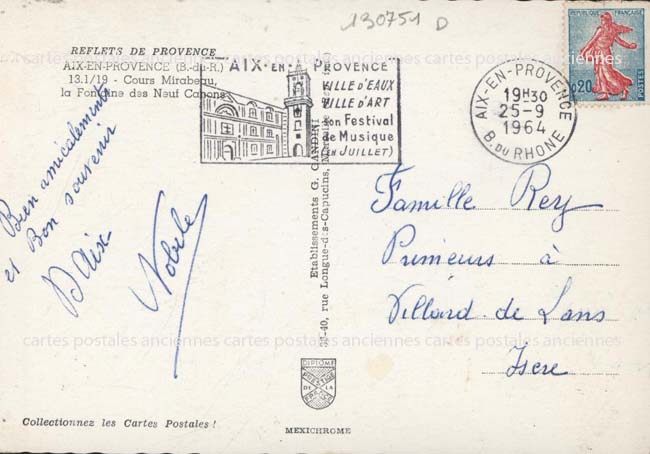 130751 D
REFLETS DE PROVENCE
AIX-EN-PROVENCE (B.-du-R.)
13.1/19 - Cours Mirabeau,
la Fontaine des Neuf Canons
AIX-EN-PROVENCE
VILLE D'EAUX
VILLE D'ART
Son Festival
de Musique
(EN JUILLET)
AIX-EN-PROVENCE
19H30
25-9
1964
B. DU RHONE
REPUBLIQUE FRANÇAISE
0,20
POSTES
Bien amicalement
et Bon souvenir
D'Aix
Nobile
Etablissements G. GANDINI
rue Longue-des-Capucins,
Famille Rey
Primeurs à
Villard-de Lans
Isere
cartes postales anciennes cartes postales anciennes cartes postales anciennes
cartes postales anciennes cartes postales anciennes cartes postales anciennes
DIPLOME
Collectionnez les Cartes Postales !
MEXICHROME